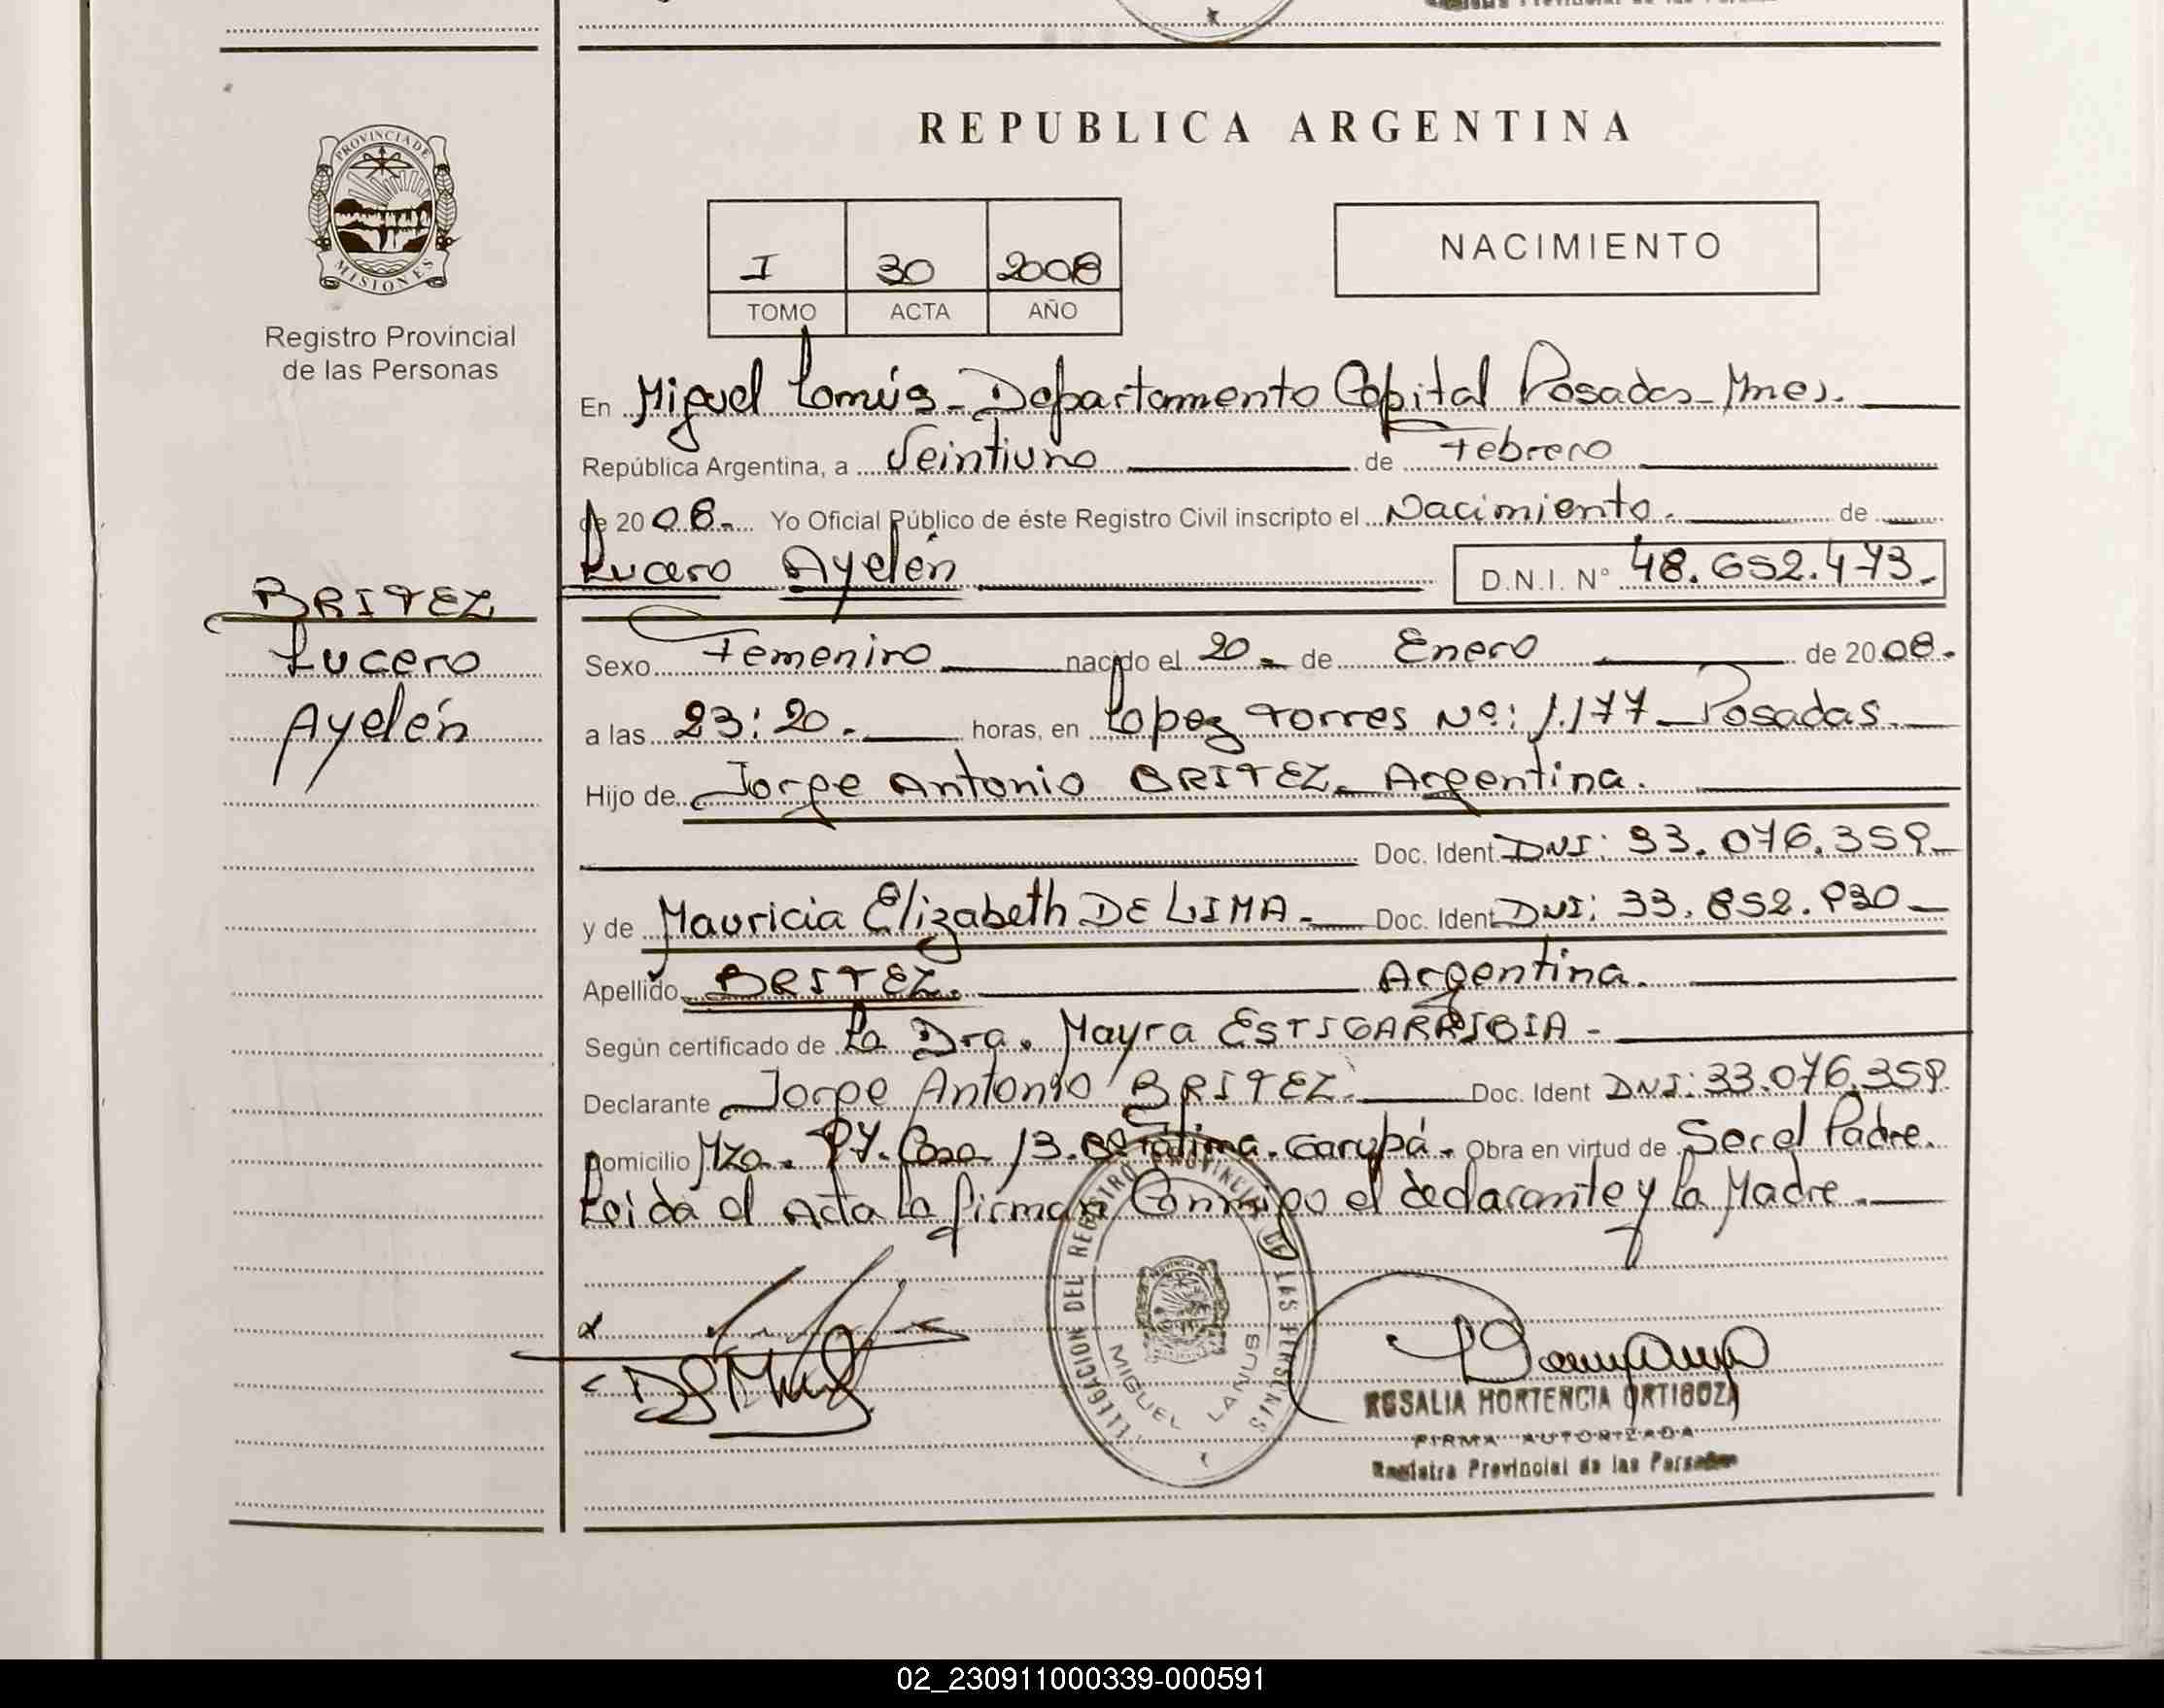 REPUBLICA ARGENTINA
PROVINCIA DE
MISIONES
Registro Provincial
de las Personas
I 30 2008
TOMO ACTA AÑO
NACIMIENTO
En Miguel Lanús - Departamento Capital Posadas - Mnes.
República Argentina, a Veintiuno de Febrero
de 2008. Yo Oficial Público de éste Registro Civil inscripto el Nacimiento. de
Lucero Ayelén D.N.I. N° 48.652.473.
BRITEZ
Lucero
Ayelén
Sexo Femenino nacido el 20 de Enero de 2008.
a las 23:20. horas, en Lopez Torres Nº: 1.177 - Posadas
Hijo de Jorge Antonio BRITEZ - Argentina.
Doc. Ident. DNI: 33.076.359
y de Mauricia Elizabeth DE LIMA. Doc. Ident DNI: 33.852.930
Apellido BRITEZ. Argentina.
Según certificado de La Dra. Mayra ESTIGARRIBIA -
Declarante Jorge Antonio BRITEZ. Doc. Ident DNI: 33.076.359.
Domicilio Mza. Casa 13. Bº Fátima. Garupá. Obra en virtud de Ser el Padre.
Leida el Acta la firman Conmigo el declarante y la Madre.
DELEGACION DEL REGISTRO PROVINCIAL DE LAS PERSONAS
MIGUEL LANUS
ROSALIA HORTENCIA ORTIGOZA
FIRMA AUTORIZADA
Registro Provincial de las Personas
02_230911000339-000591